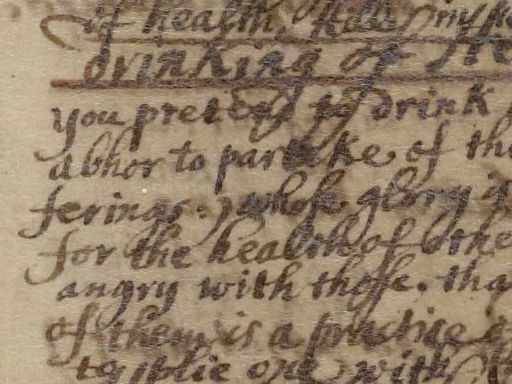 of health,
drinking of
you pretend to drink
abhor to partake of the
ferings: whose glory is
for the health of othe
angry with those. tha
of them is a practice
to with